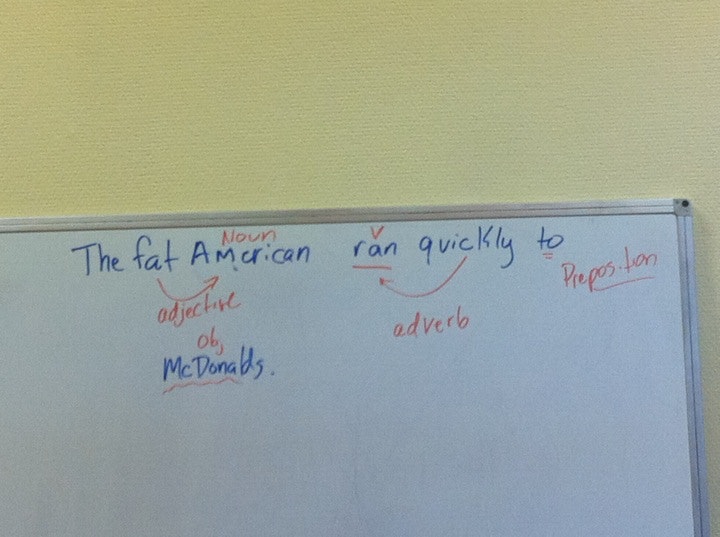 Noun V
The fat American ran quickly to
Preposition
adjective adverb
obj
McDonalds.